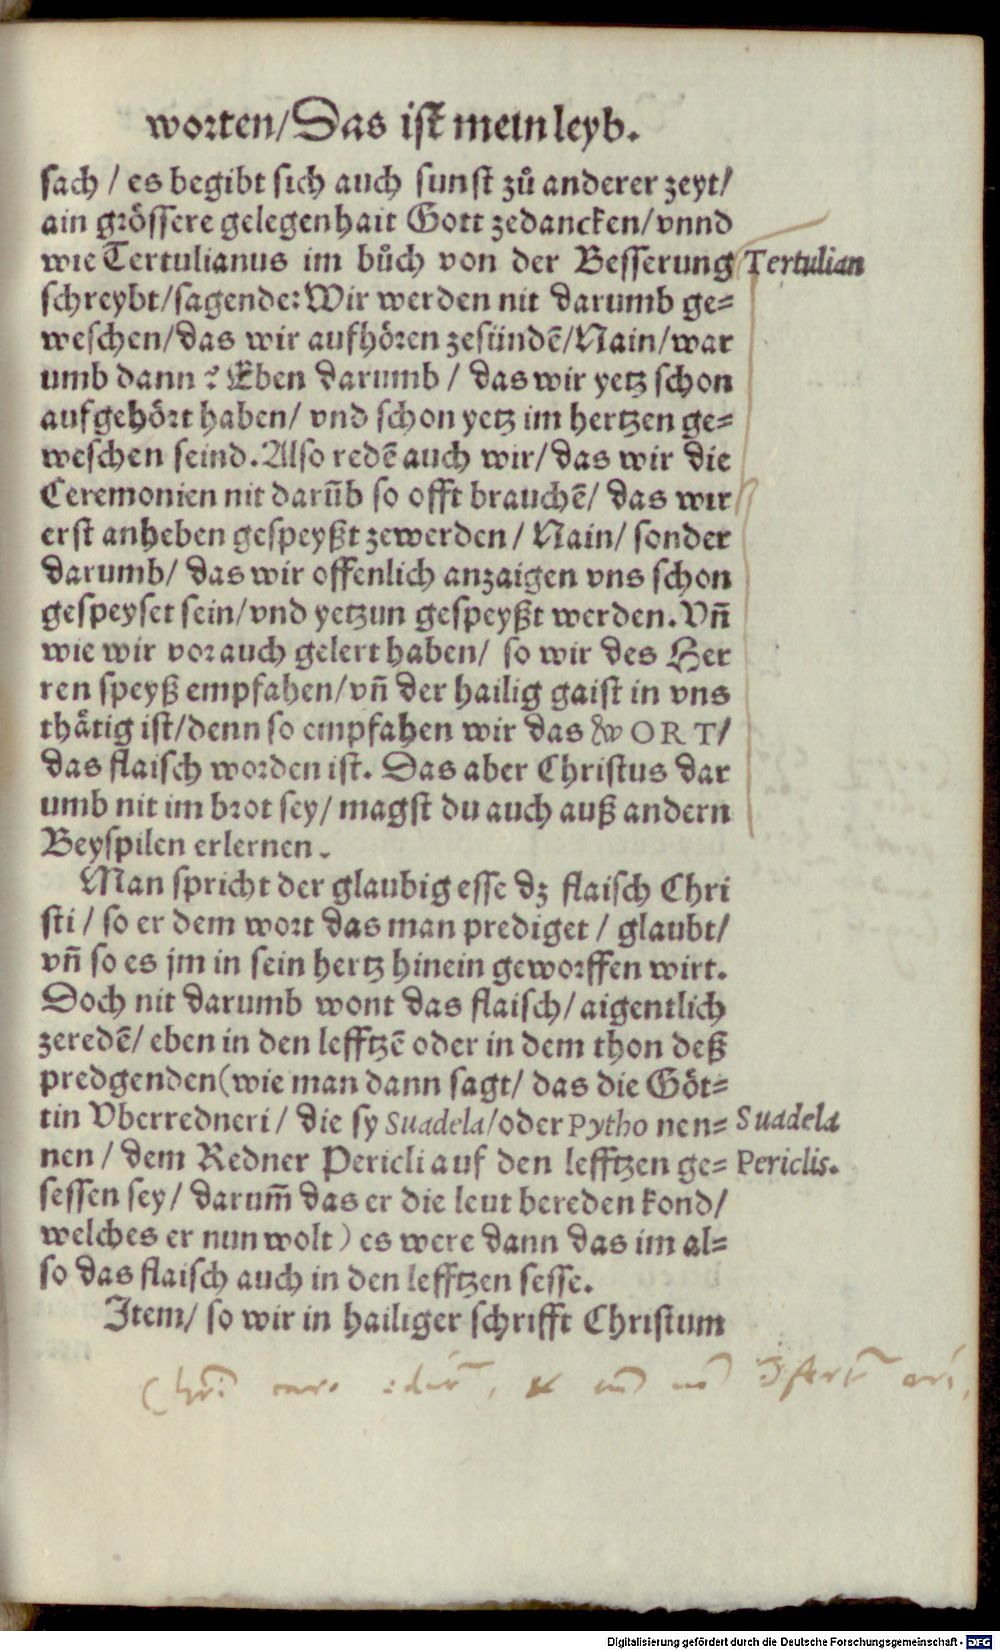 worten/Das ist mein leyb.
sach / es begibt sich auch sunst zů anderer zeyt/
ain grössere gelegenhait Gott zedancken/vnnd
wie Tertulianus im bůch von der Besserung Tertulian
schreybt/sagende: Wir werden nit darumb ge=
weschen/das wir aufhören zesündē/Nain/war
umb dann? Eben darumb / das wir yetz schon
aufgehört haben/ vnd schon yetz im hertzen ge=
weschen seind. Also redē auch wir/ das wir die
Ceremonien nit darūb so offt brauchē/ das wir
erst anheben gespeyßt zewerden / Nain/ sonder
darumb/ das wir offenlich anzaigen vns schon
gespeyset sein/vnd yetzun gespeyßt werden. Vñ
wie wir vor auch gelert haben/ so wir des Her
ren speyß empfahen/vñ der hailig gaist in vns
thätig ist/denn so empfahen wir das WORT/
das flaisch worden ist. Das aber Christus dar
umb nit im brot sey/ magst du auch auß andern
Beyspilen erlernen.
Man spricht der glaubig esse dz flaisch Chri
sti / so er dem wort das man prediget / glaubt/
vñ so es jm in sein hertz hinein geworffen wirt.
Doch nit darumb wont das flaisch/ aigentlich
zeredē/ eben in den lefftzē oder in dem thon deß
predgenden (wie man dann sagt/ das die Göt=
tin Vberredneri / die sy Suadela/oder Pytho nen= Suadela
nen / dem Redner Pericli auf den lefftzen ge= Periclis.
sessen sey/ darum̄ das er die leut bereden kond/
welches er nun wolt) es were dann das im al=
so das flaisch auch in den lefftzen sesse.
Item/ so wir in hailiger schrifft Christum
Digitalisierung gefördert durch die Deutsche Forschungsgemeinschaft - DFG